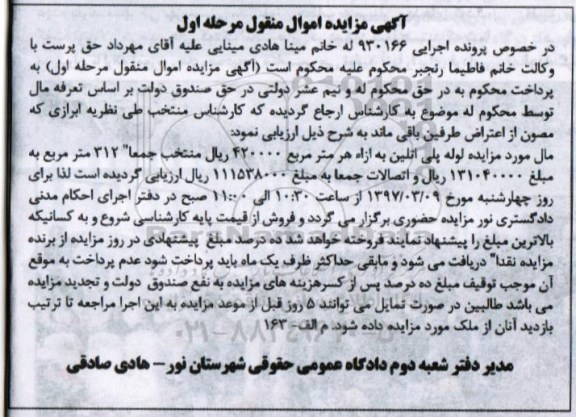 آگهی مزایده اموال منقول مرحله اول
در خصوص پرونده اجرایی ۹۳۰۱۶۶ له خانم مینا هادی مینایی علیه آقای مهرداد حق پرست با
وکالت خانم فاطیما رنجبر محکوم علیه محکوم است (آگهی مزایده اموال منقول مرحله اول) به
پرداخت محکوم به در حق محکوم له و نیم عشر دولتی در حق صندوق دولت بر اساس تعرفه مال
توسط محکوم له موضوع به کارشناس ارجاع گردیده که کارشناس منتخب طی نظریه ابرازی که
مصون از اعتراض طرفین باقی مانده به شرح ذیل ارزیابی نمود:
مال مورد مزایده لوله پلی اتلین به ازاء هر متر مربع ۴۲۰۰۰۰ ریال منتخب جمعا" ۳۱۲ متر مربع به
مبلغ ۱۳۱۰۴۰۰۰۰ ریال و اتصالات جمعا به مبلغ ۱۱۱۵۳۸۰۰۰ ریال ارزیابی گردیده است لذا برای
روز چهارشنبه مورخ ۱۳۹۷/۰۳/۰۹ از ساعت ۱۰:۳۰ الی ۱۱:۰۰ صبح در دفتر اجرای احکام مدنی
دادگستری نور مزایده حضوری برگزار می گردد و فروش از قیمت پایه کارشناسی شروع و به کسانیکه
بالاترین مبلغ را پیشنهاد نمایند فروخته خواهد شد ده درصد مبلغ پیشنهادی در روز مزایده از برنده
مزایده نقدا" دریافت می شود و مابقی حداکثر ظرف یک ماه باید پرداخت شود عدم پرداخت به موقع
آن موجب توقیف مبلغ ده درصد پس از کسرهزینه های مزایده به نفع صندوق دولت و تجدید مزایده
می باشد طالبین در صورت تمایل می توانند ۵ روز قبل از موعد مزایده به این اجرا مراجعه تا ترتیب
بازدید آنان از ملک مورد مزایده داده شود. م الف - ۱۶۳
مدیر دفتر شعبه دوم دادگاه عمومی حقوقی شهرستان نور – هادی صادقی